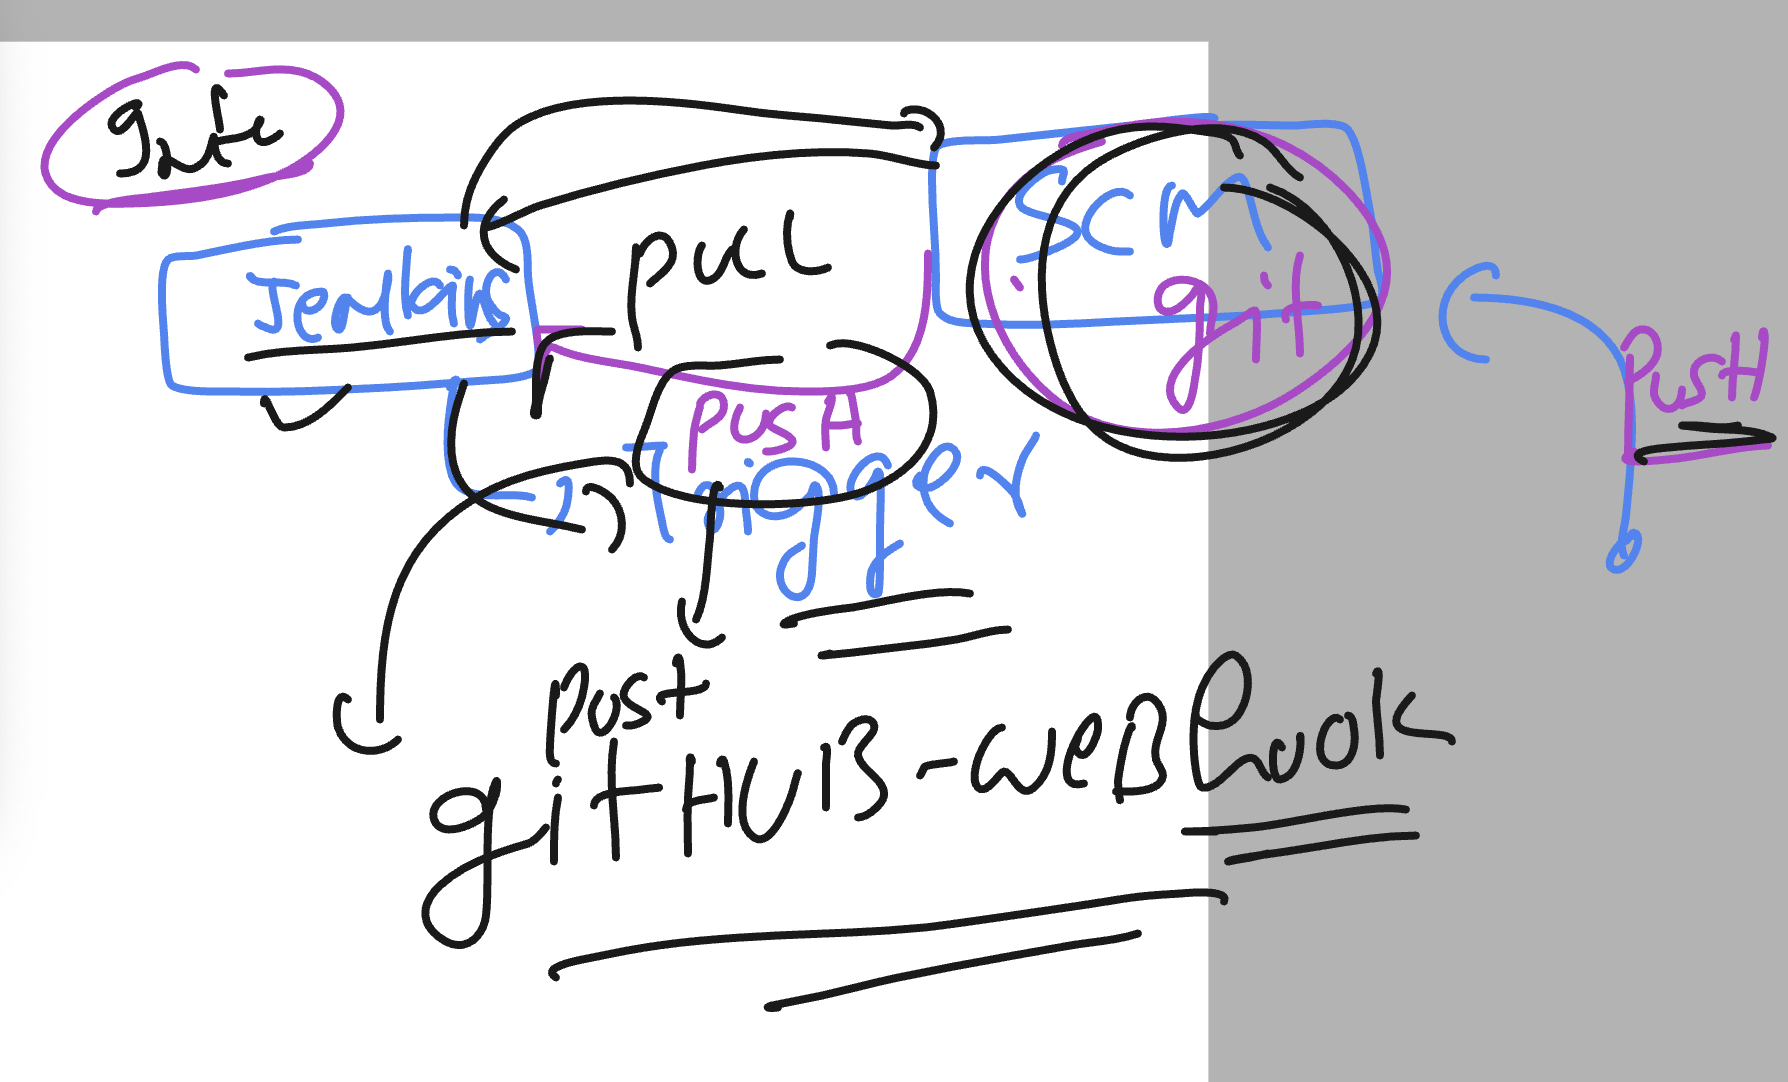 SCM
Jenkins
pull
git
PUSH
PUSH
Trigger
post
gitHUB-weBhook